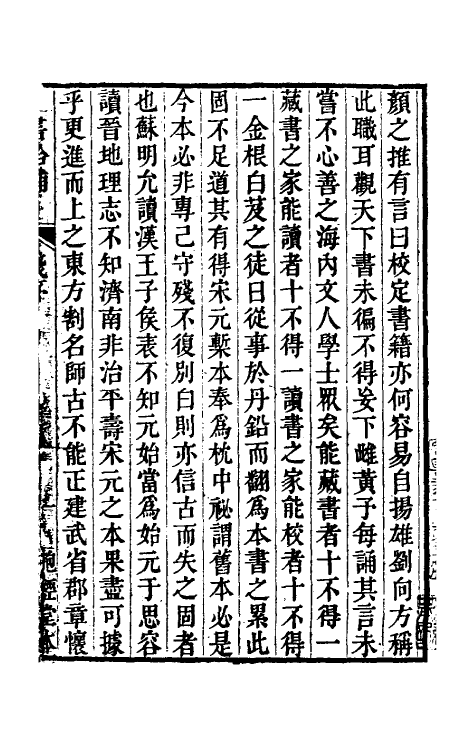 顏之推有言曰校定書籍亦何容易自揚雄劉向方稱
此職耳觀天下書未徧不得妄下雌黃予每誦其言未
嘗不心善之海內文人學士眾矣能藏書者十不得一
藏書之家能讀者十不得一讀書之家能校者十不得
一金根白芨之徒日從事於丹鉛而翻爲本書之累此
固不足道其有得宋元槧本奉爲枕中祕謂舊本必是
今本必非專己守殘不復別白則亦信古而失之固者
也蘇明允讀漢王子侯表不知元始當爲始元于思容
讀晉地理志不知濟南非治平壽宋元之本果盡可據
乎更進而上之東方割名師古不能正建武省郡章懷
抱經堂本